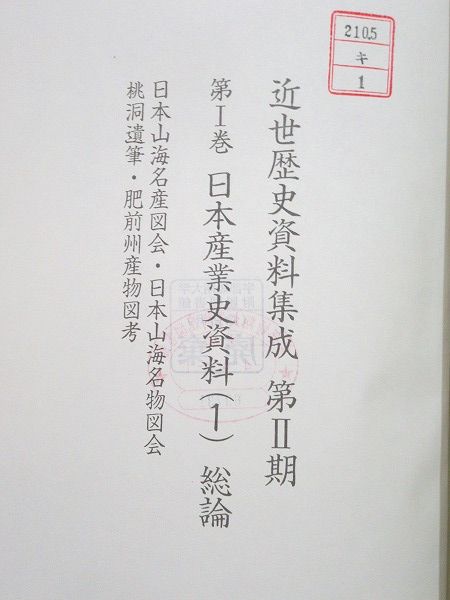 210.5
キ
1
近世歴史資料集成 第Ⅱ期
第Ⅰ巻 日本産業史資料(1) 総論
日本山海名産図会・日本山海名物図会
桃洞遺筆・肥前州産物図考